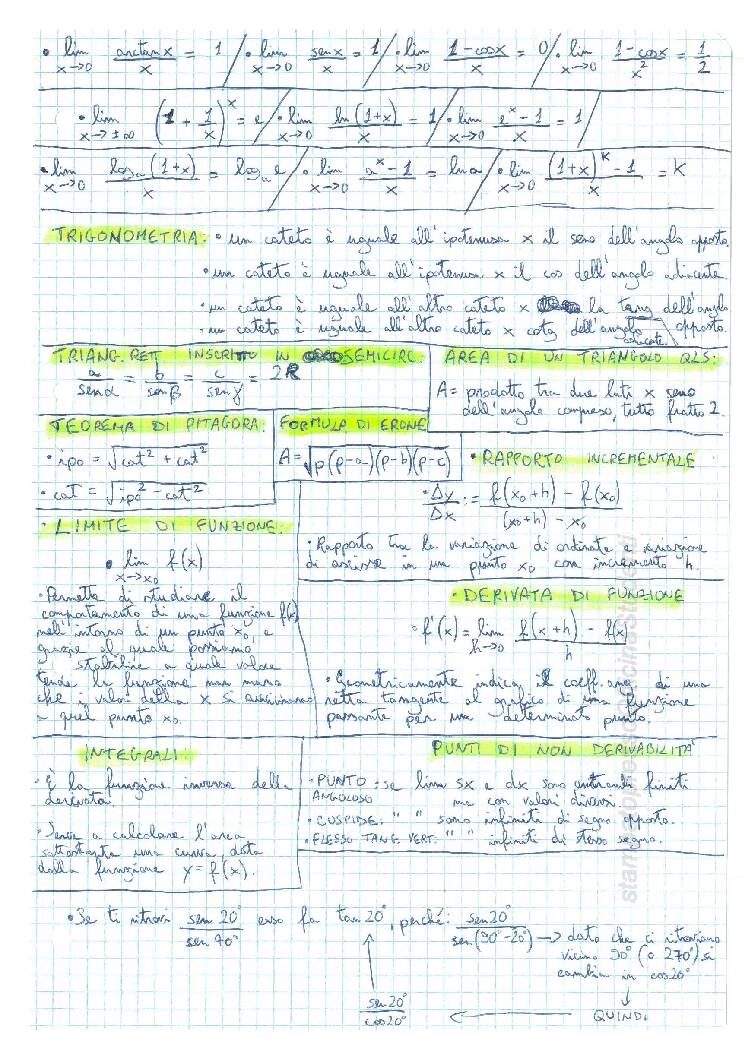 • lim x→0 arctan x / x = 1 / • lim x→0 sen x / x = 1 / • lim x→0 1-cosx / x = 0 / • lim x→0 1-cosx / x² = 1/2
• lim x→±∞ (1 + 1/x)^x = e / • lim x→0 ln(1+x) / x = 1 / • lim x→0 e^x - 1 / x = 1 /
• lim x→0 log_a(1+x) / x = log_a e / • lim x→0 a^x - 1 / x = ln a / • lim x→0 (1+x)^k - 1 / x = K
TRIGONOMETRIA: • un cateto è uguale all'ipotenusa x il seno dell'angolo opposto.
• un cateto è uguale all'ipotenusa x il cos dell'angolo adiacente
• un cateto è uguale all'altro cateto x la tang dell'angolo opposto.
• un cateto è uguale all'altro cateto x cotg dell'angolo adiacente
TRIANG. RETT INSCRITTO IN SEMICIRC.
a / senα = b / senβ = c / senγ = 2R
AREA DI UN TRIANGOLO QLS:
A = prodotto tra due lati x seno
dell'angolo compreso, tutto fratto 2.
TEOREMA DI PITAGORA:
• ipo = √cat² + cat²
• cat = √ipo² - cat²
FORMULA DI ERONE
A = √p(p-a)(p-b)(p-c)
• RAPPORTO INCREMENTALE
• Δy / Δx := f(x₀+h) - f(x₀) / (x₀+h) - x₀
• Rapporto tra la variazione di ordinate e variazione
di ascisse in un punto x₀ con incremento h.
• LIMITE DI FUNZIONE:
• lim x→x₀ f(x)
• Permette di studiare il
comportamento di una funzione f(x)
nell'intorno di un punto x₀, e
grazie al quale possiamo
stabilire a quale valore
tende la funzione man mano
che i valori della x si avvicinano
a quel punto x₀.
• DERIVATA DI FUNZIONE
• f'(x) = lim h→0 f(x+h) - f(x) / h
• Geometricamente indica il coeff. ang. di una
retta tangente al grafico di una funzione
passante per un determinato punto.
INTEGRALI:
• È la funzione inversa della
derivata.
• Serve a calcolare l'area
sottostante una curva, data
dalla funzione y = f(x).
PUNTI DI NON DERIVABILITA'
• PUNTO ANGOLOSO : se lim sx e dx sono entrambi finiti
ma con valori diversi.
• CUSPIDE: " " sono infiniti di segno opposto.
• FLESSO TANG. VERT: " " infiniti di stesso segno.
• Se ti ritrovi sen 20° / sen 70° esso fa tan 20°, perché: sen 20° / sen(90°-20°) → dato che ci ritroviamo
vicino 90° (o 270°) si
cambia in cos 20°
QUINDI
sen 20° / cos 20°